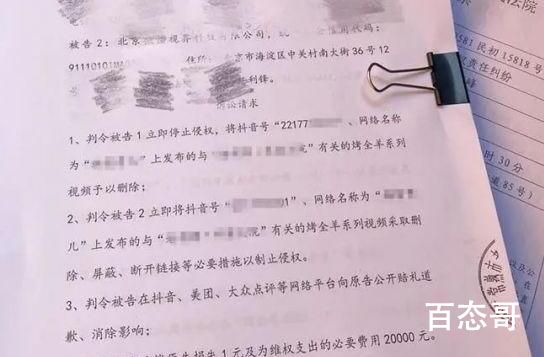 被告2：北京
视界科技有限公司，
信用代码：
91110101MA
住所：
京市海淀区中关村南大街36号12
利锋。
诉讼请求
1、判令被告1立即停止侵权，将抖音号“22177
、网络名称
为“
”上发布的与
”有关的烤全羊系列
视频予以删除；
2、判令被告2立即将抖音号“
1”、网络名称为“
儿”上发布的与“
院”有关的烤全羊系列视频采取删
除、屏蔽、断开链接等必要措施以制止侵权。
3、判令被告在抖音、美团、大众点评等网络平台向原告公开赔礼道
歉、消除影响；
损失1元及为维权支出的必要费用20000元。
法院
581民初15818号
责任纠纷
峰
时30分
道85号）
以及公
百态哥